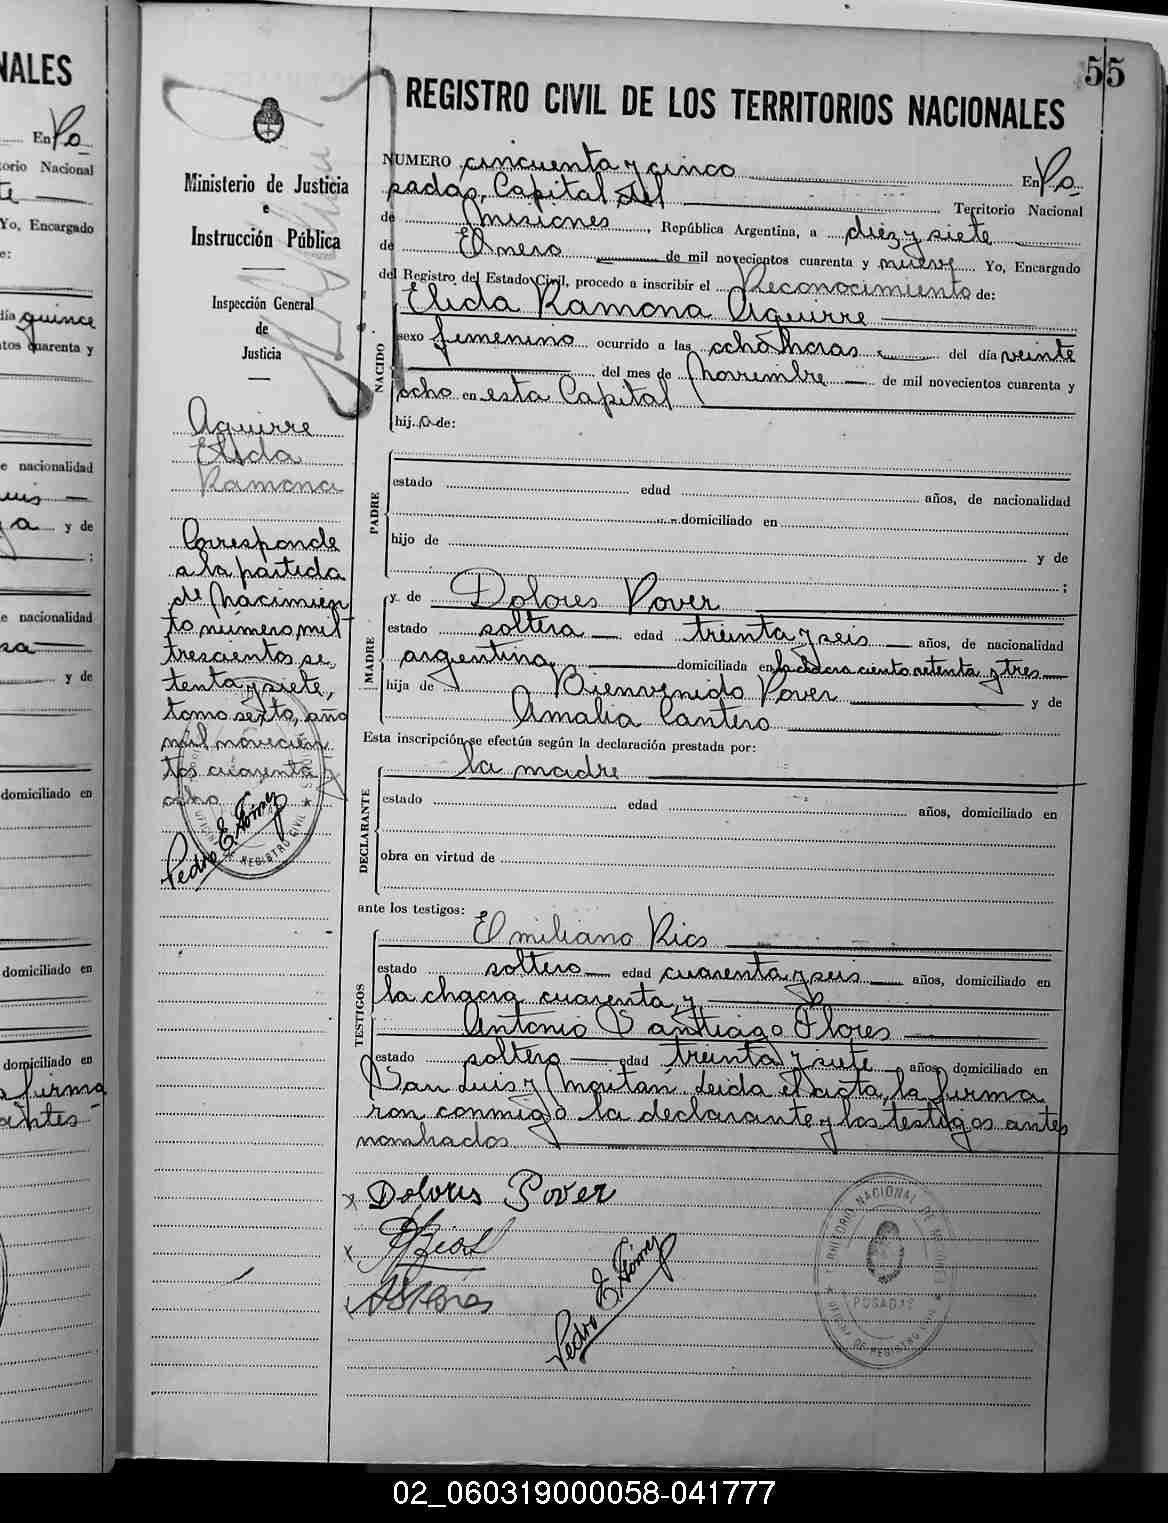 NALES
En Po
torio Nacional
te
Yo, Encargado
e:
día quince
tos cuarenta y
e nacionalidad
y de
;
e nacionalidad
sa
y de
domiciliado en
domiciliado en
domiciliado en
firma
antes
55
REGISTRO CIVIL DE LOS TERRITORIOS NACIONALES
Ministerio de Justicia
e
Instrucción Pública
Inspección General
de
Justicia
Aguirre
Elida
Ramona
Corresponde
a la partida
de Nacimien
to número mil
trescientos se,
tenta y siete,
tomo sexto, año
mil novecien
tos cuarenta y
ocho
Pedro E. Gómez
REGISTRO CIVIL
NUMERO cincuenta y cinco En Po
sadas, Capital del Territorio Nacional
de Misiones, República Argentina, a diez y siete
de Enero de mil novecientos cuarenta y nueve Yo, Encargado
del Registro del Estado Civil, procedo a inscribir el Reconocimiento de:
Elida Ramona Aguirre
NACIDO
sexo femenino ocurrido a las ocho horas del día veinte
del mes de Noviembre de mil novecientos cuarenta y
ocho en esta Capital
hij a de:
PADRE
estado edad años, de nacionalidad
domiciliado en
hijo de y de
;
MADRE
y de Dolores Pover
estado soltera edad treinta y seis años, de nacionalidad
argentina, domiciliada en la chacra ciento setenta y tres
hija de Bienvenido Pover y de
Amalia Cantero
Esta inscripción se efectúa según la declaración prestada por:
la madre
DECLARANTE
estado edad años, domiciliado en
obra en virtud de
ante los testigos:
TESTIGOS
Emiliano Rios
estado soltero edad cuarenta y seis años, domiciliado en
la chacra cuarenta, y
Antonio Santiago Flores
estado soltero edad treinta y siete años, domiciliado en
San Luis y Moritán. Leida el acta, la firma
ron conmigo la declarante y los testigos antes
nombrados
x Dolores Pover
x
x
Pedro E. Gómez
TERRITORIO NACIONAL DE MISIONES
POSADAS
OFICINA DE REGISTRO CIVIL
02_060319000058-041777